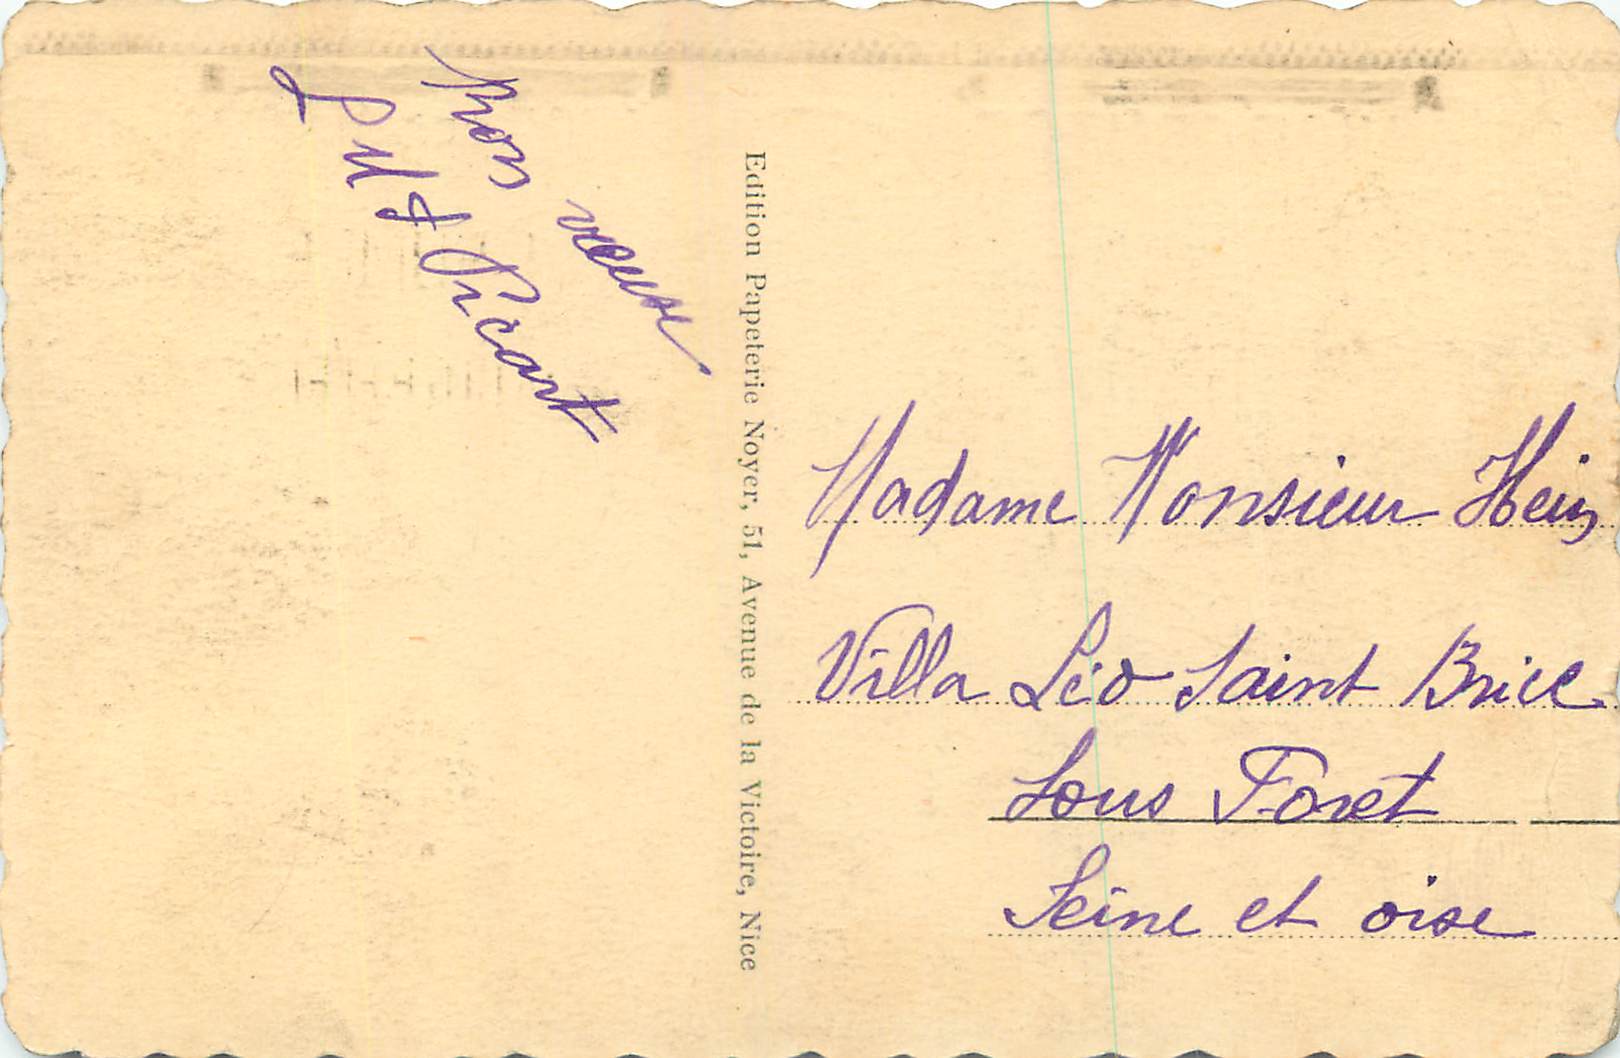 Bons
Picart
Edition Papeterie Noyer, 51, Avenue de la Victoire, Nice
Madame Monsieur Hein
Villa Léo Saint Brice
Sous Foret
Seine et oise